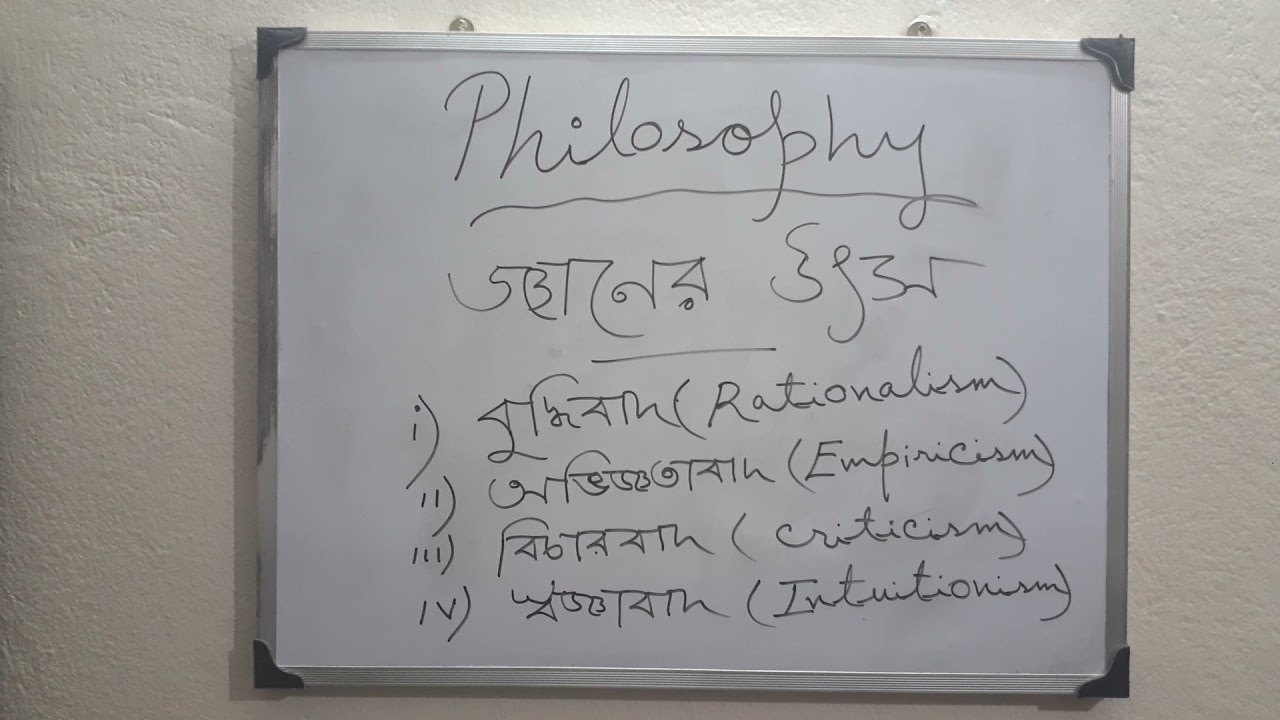 Philosophy
জ্ঞানের উৎস
i) বুদ্ধিবাদ (Rationalism)
ii) অভিজ্ঞতাবাদ (Empiricism)
iii) বিচারবাদ (criticism)
iv) স্বজ্ঞাবাদ (Intuitionism)